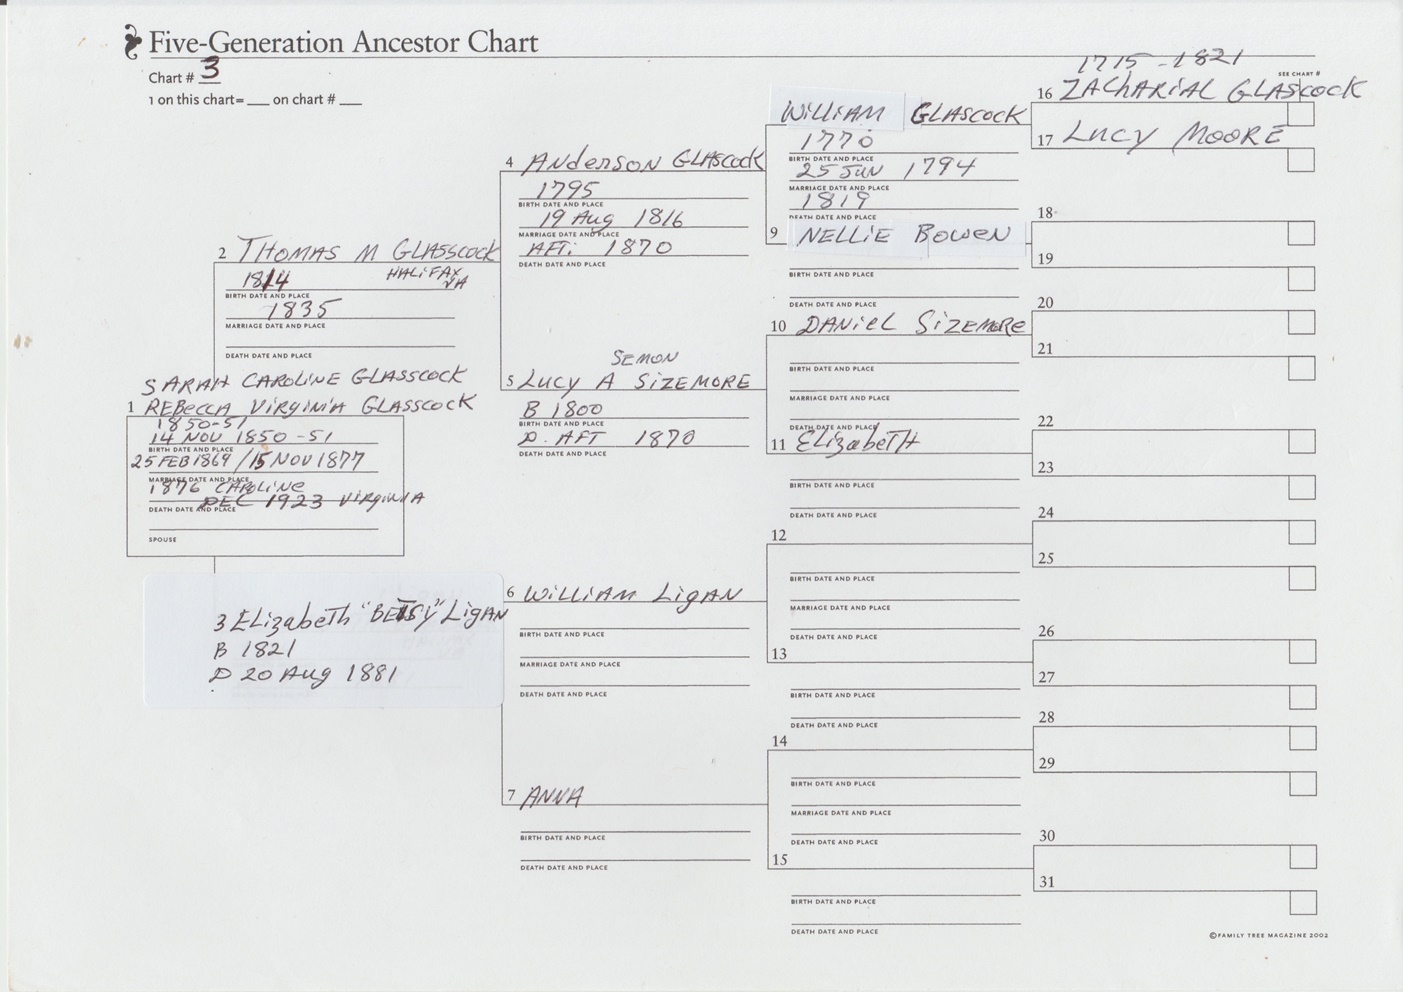 Five-Generation Ancestor Chart
Chart # 3
1 on this chart= ___ on chart # ___
SARAH CAROLINE GLASSCOCK
1 REBECCA VIRGINIA GLASSCOCK
1850-51
14 NOV 1850 -51
BIRTH DATE AND PLACE
25 FEB 1869 / 15 NOV 1877
MARRIAGE DATE AND PLACE
1876 CAROLINE
DEC 1923 VIRGINIA
DEATH DATE AND PLACE
SPOUSE
2 THOMAS M GLASSCOCK
1814 HALIFAX VA
BIRTH DATE AND PLACE
1835
MARRIAGE DATE AND PLACE
DEATH DATE AND PLACE
3 Elizabeth "BETSY" LIGAN
B 1821
D 20 Aug 1881
4 ANDERSON GLASCOCK
1795
BIRTH DATE AND PLACE
19 Aug 1816
MARRIAGE DATE AND PLACE
AFT. 1870
DEATH DATE AND PLACE
SEMON
5 LUCY A SIZEMORE
B 1800
BIRTH DATE AND PLACE
D. AFT 1870
DEATH DATE AND PLACE
6 WILLIAM LIGAN
BIRTH DATE AND PLACE
MARRIAGE DATE AND PLACE
DEATH DATE AND PLACE
7 ANNA
BIRTH DATE AND PLACE
DEATH DATE AND PLACE
WILLIAM GLASCOCK
1770
BIRTH DATE AND PLACE
25 JUN 1794
MARRIAGE DATE AND PLACE
1819
DEATH DATE AND PLACE
9 NELLIE BOWEN
BIRTH DATE AND PLACE
DEATH DATE AND PLACE
10 DANIEL SIZEMORE
BIRTH DATE AND PLACE
MARRIAGE DATE AND PLACE
DEATH DATE AND PLACE
11 ElizabeTH
BIRTH DATE AND PLACE
DEATH DATE AND PLACE
12
BIRTH DATE AND PLACE
MARRIAGE DATE AND PLACE
DEATH DATE AND PLACE
13
BIRTH DATE AND PLACE
DEATH DATE AND PLACE
14
BIRTH DATE AND PLACE
MARRIAGE DATE AND PLACE
DEATH DATE AND PLACE
15
BIRTH DATE AND PLACE
DEATH DATE AND PLACE
1715 - 1821
SEE CHART #
16 ZAChARIAL GLASCOCK
17 LUCY MOORE
18
19
20
21
22
23
24
25
26
27
28
29
30
31
©FAMILY TREE MAGAZINE 2002